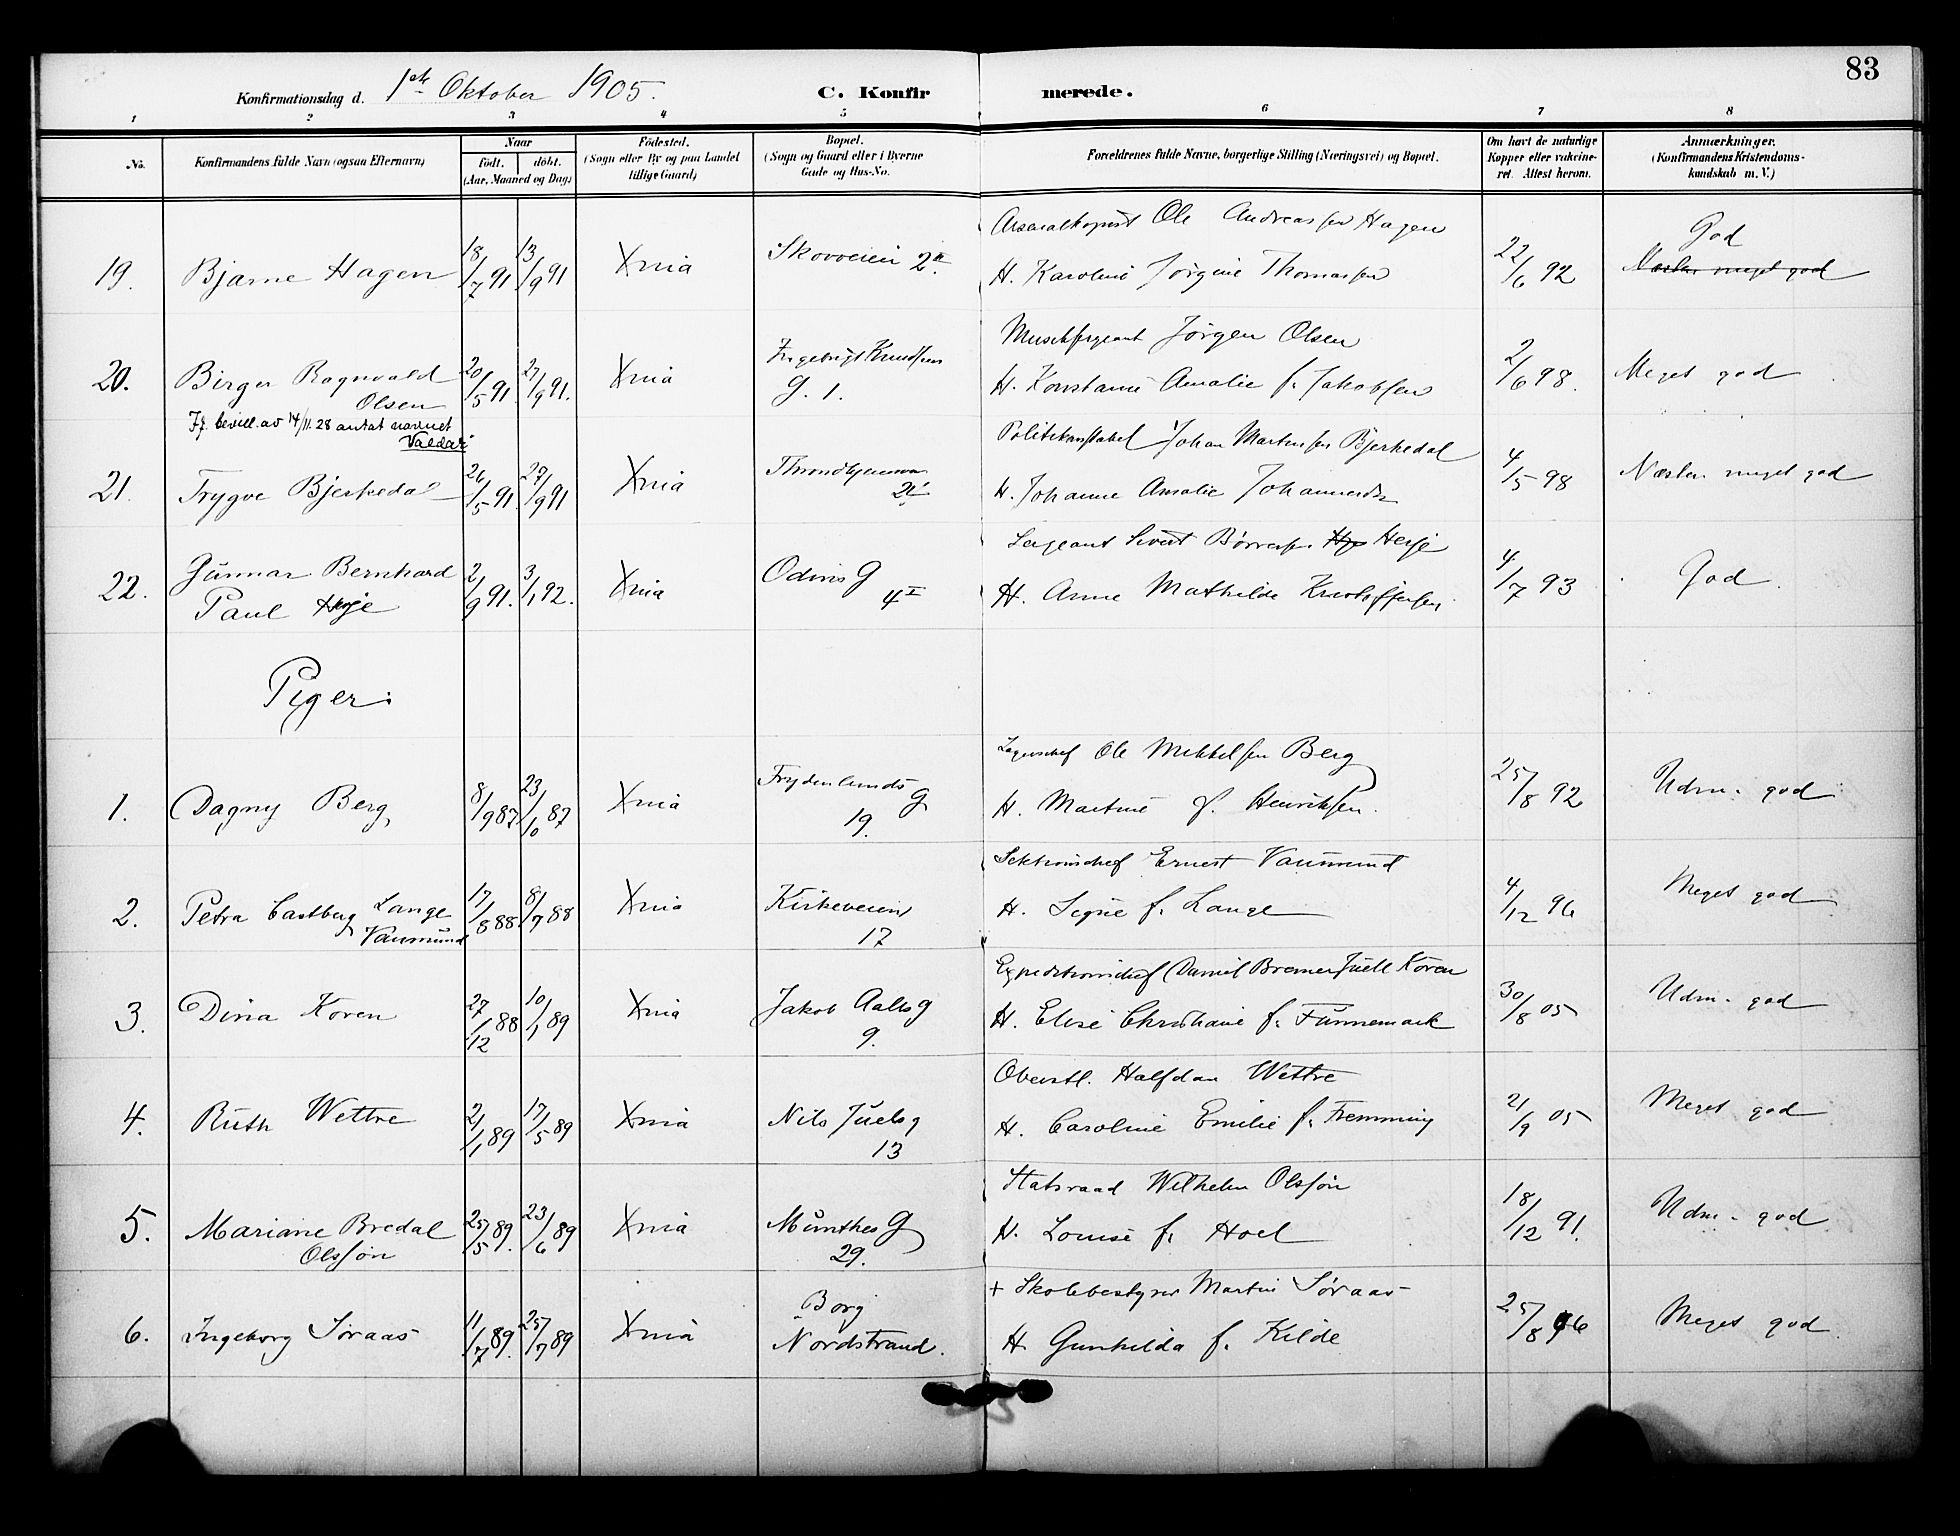 83
Konfirmationsdag d. 1ste Oktober 1905. C. Konfirmerede.
1 2 3 4 5 6 7 8
No. Konfirmandens fulde Navn (ogsaa Efternavn) Naar født. døbt. (Aar, Maaned og Dag) Fødested. (Sogn eller By og paa Landet tillige Gaard) Bopæl. (Sogn og Gaard eller i Byerne Gade og Hus-No. Forældrenes fulde Navne, borgerlige Stilling (Næringsvei) og Bopæl. Om havt de naturlige Kopper eller vakcineret. Attest herom. Anmærkninger. (Konfirmandens Kristendomskundskab m. V.)
Ole Andreassen Hagen God
19. Bjarne Hagen 18/7 91 13/9 91 Xnia Skovveien 2 II. H. Karoline Jørgine Thomassen 22/6 92 Næsten meget god
Jørgen Olsen
20. Birger Ragnvald Olsen 20/5 91. 27/9 91. Xnia Ingebrigt Knudsens G. 1. H. Konstance Amalie f. Jakobsen 2/6 98. Meget god
If. bevill. av 14/11. 28 antat navnet Valdar
Politikonstabel Johan Martinsen Bjerkedal
21. Trygve Bjerkedal 26/5 91. 27/9 91 Xnia 2 H. Johanne Amalie Johannesdr 4/5 98 Næsten meget god
Sergeant Sivert Børresen Hesje
22. Gunnar Bernhard Paul Hesje 2/9 91. 3/1 92. Xnia Odins G 4 I H. Anne Mathilde Kristoffersen. 4/7 93 God.
Piger:
Lagerchef Ole Mikkelsen Berg
1. Dagny Berg, 8/9 87 23/10 87 Xnia Frydenlunds G 19. H. Martine f. Henriksen. 25/8 92 Udm. god
Sektionschef Ernest Vaumund
2. Petra Castberg Lange Vaumund 17/8 88. 8/7 88 Xnia Kirkeveien 17 H. Signe f. Lange 4/12 96 Meget god
Expeditionschef Daniel Bremer Juell Koren
3. Dina Koren 27/12 88 10/1 89 Xnia Jakob Aalls g 9. H. Elise Christiane f. Funnemark 30/8 05 Udm. god
Oberstl. Halfdan Wettre
4. Ruth Wettre 2/1 89 17/5 89 Xnia Nils Juels g 13 H. Caroline Emilie f. Fremming 21/9 05 Meget god
Statsraad Wilhelm Olssøn
5. Mariane Bredal Olssøn 25/5 89. 23/6 89 Xnia Munthes G 29. H. Louise f. Hoel 18/12 91. Udm. god
+ Skolebestyrer Martin Søraas
6. Ingeborg Søraas 11/7 89. 25/7 89 Xnia Borg Nordstrand. H. Gunhilda f. Kilde 25/8 96 Meget god.